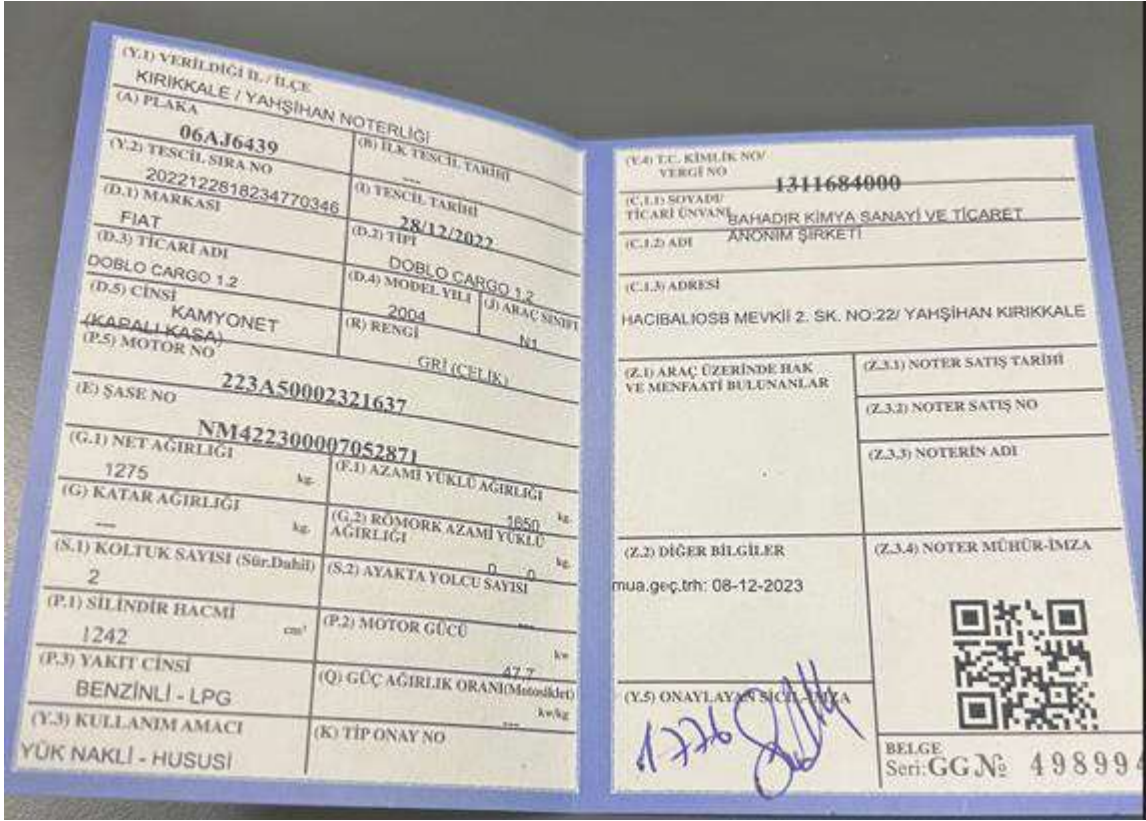 (Y.1) VERİLDİĞİ İL / İLÇE
KIRIKKALE / YAHŞİHAN NOTERLİĞİ
(A) PLAKA
06AJ6439
(B) İLK TESCİL TARİHİ
---
(Y.2) TESCİL SIRA NO
2022122818234770346
(I) TESCİL TARİHİ
28/12/2022
(D.1) MARKASI
FIAT
(D.2) TİPİ
DOBLO CARGO 1.2
(D.3) TİCARİ ADI
DOBLO CARGO 1.2
(D.4) MODEL YILI
2004
(J) ARAÇ SINIFI
N1
(D.5) CİNSİ
KAMYONET
(KAPALI KASA)
(R) RENGİ
GRİ (ÇELİK)
(P.5) MOTOR NO
223A50002321637
(E) ŞASE NO
NM422300007052871
(G.1) NET AĞIRLIĞI
1275 kg.
(F.1) AZAMİ YÜKLÜ AĞIRLIĞI
1650 kg.
(G) KATAR AĞIRLIĞI
--- kg.
(G.2) RÖMORK AZAMİ YÜKLÜ
AĞIRLIĞI
0 0 kg.
(S.1) KOLTUK SAYISI (Sür.Dahil)
2
(S.2) AYAKTA YOLCU SAYISI
---
(P.1) SİLİNDİR HACMİ
1242 cm³
(P.2) MOTOR GÜCÜ
47.7 kw
(P.3) YAKIT CİNSİ
BENZİNLİ - LPG
(Q) GÜÇ AĞIRLIK ORANI(Motosiklet)
--- kw/kg
(Y.3) KULLANIM AMACI
YÜK NAKLİ - HUSUSİ
(K) TİP ONAY NO
(Y.4) T.C. KİMLİK NO/
VERGİ NO
1311684000
(C.1.1) SOYADI/
TİCARİ ÜNVANI
BAHADIR KİMYA SANAYİ VE TİCARET
ANONİM ŞİRKETİ
(C.1.2) ADI
(C.1.3) ADRESİ
HACIBALIOSB MEVKİİ 2. SK. NO:22/ YAHŞİHAN KIRIKKALE
(Z.1) ARAÇ ÜZERİNDE HAK
VE MENFAATİ BULUNANLAR
(Z.3.1) NOTER SATIŞ TARİHİ
(Z.3.2) NOTER SATIŞ NO
(Z.3.3) NOTERİN ADI
(Z.2) DİĞER BİLGİLER
mua.geç.trh: 08-12-2023
(Z.3.4) NOTER MÜHÜR-İMZA
(Y.5) ONAYLAYAN SİCİL-İMZA
1776
BELGE
Seri:GG № 498994